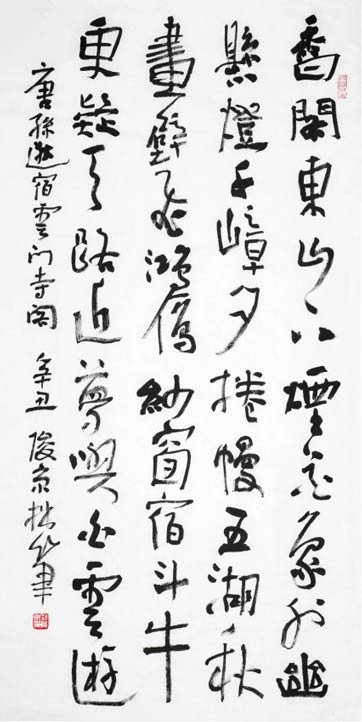 香閣東山下煙花象外幽
懸燈千嶂夕捲幔五湖秋
畫壁余鴻雁紗窗宿斗牛
更疑天路近夢與白雲遊
唐孫逖宿雲门寺阁 辛丑 俊京拙筆